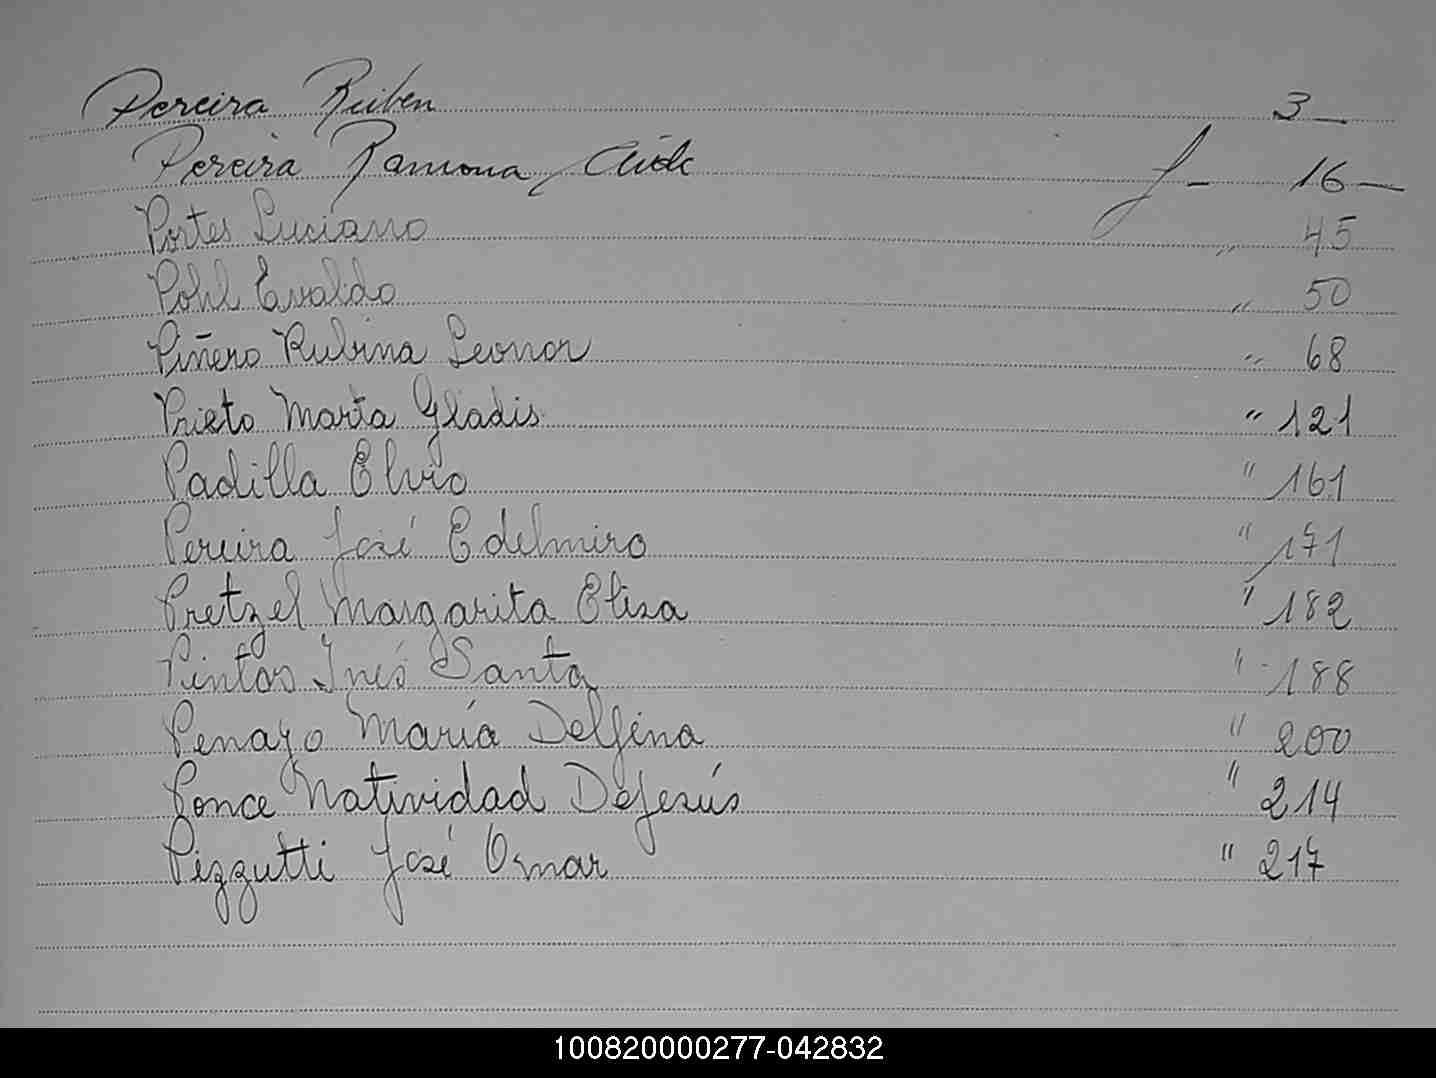 Pereira Ruben 3_
Pereira Ramona Aide f- 16_
Portes Luciano " 45
Pohl Evaldo " 50
Piñero Rubina Leonor " 68
Prieto Marta Gladis " 121
Padilla Elvio " 161
Pereira José Edelmiro " 171
Pretzel Margarita Elisa " 182
Pintos Inés Santa " 188
Penayo María Delfina " 200
Ponce Natividad Dejesús " 214
Pizzutti José Omar " 217
100820000277-042832